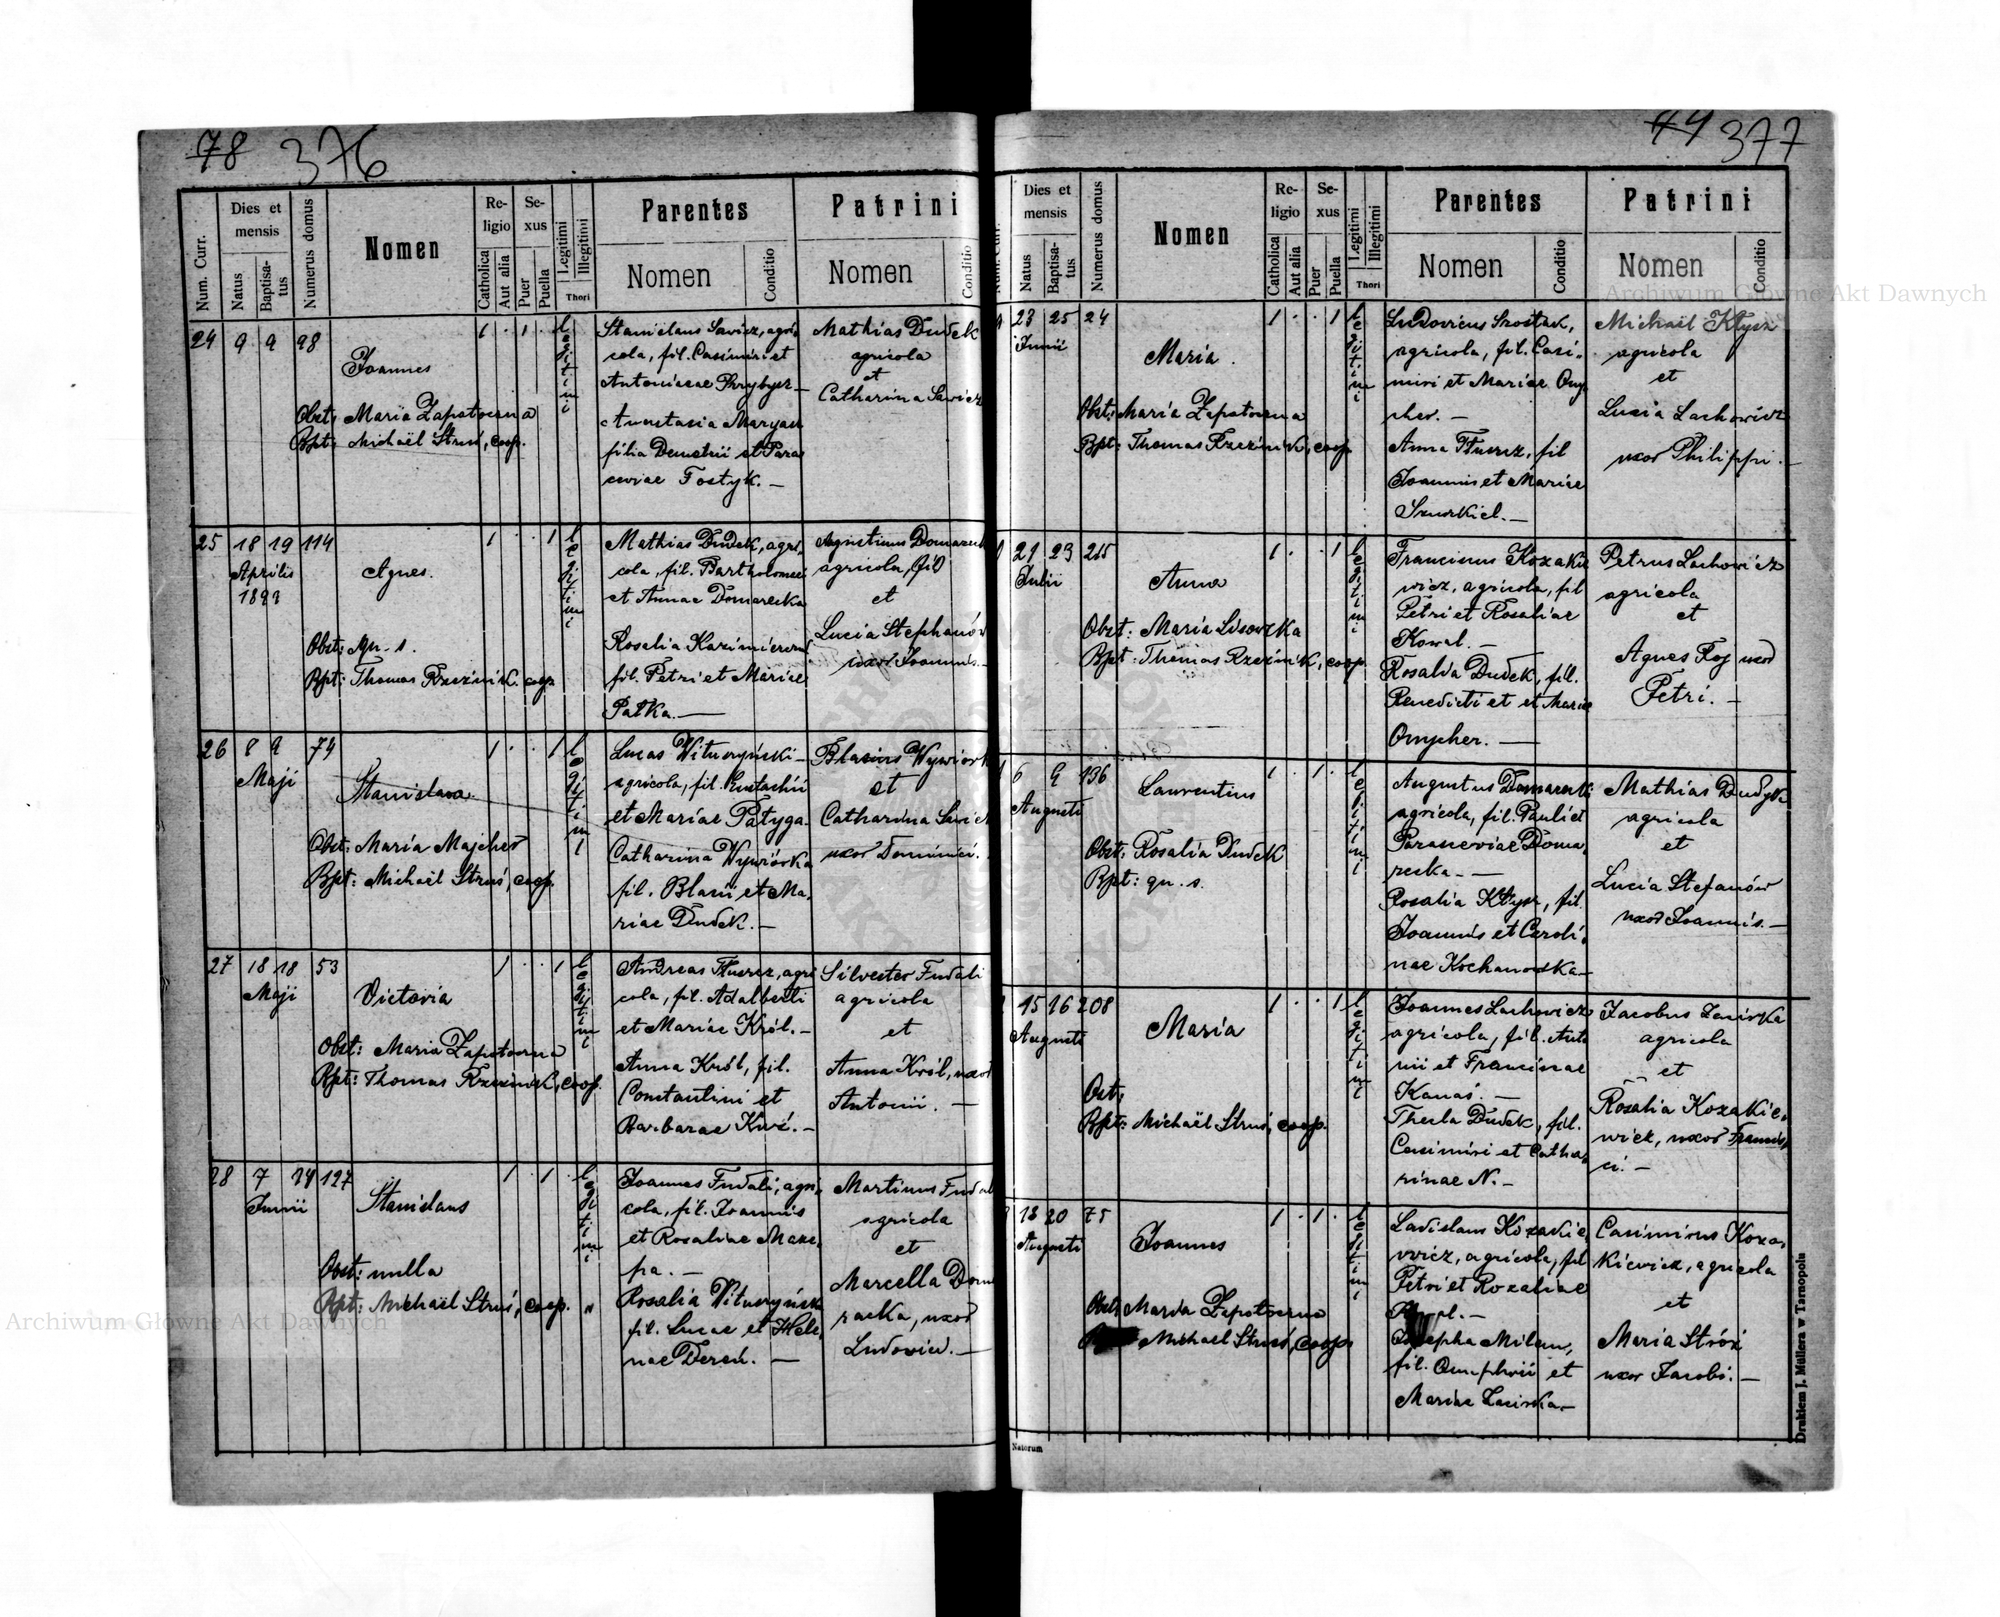 78 376
Num. Curr.
Dies et mensis
Natus
Baptisatus
Numerus domus
Nomen
Religio
Catholica
Aut alia
Sexus
Puer
Puella
Legitimi
Illegitimi
Thori
Parentes
Nomen
Conditio
Patrini
Nomen
Conditio
24 9 9 98
Joannes
Obst: Maria Zapotoczna
Bpt: Michaël Struś, coop.
1 . 1 .
legitimi
Stanislaus Sawicz, agri-
cola, fil. Casimiri et
Antoninae
Anastasia Maryan
filia Demetrii et Paras
ceviae Fostyk. —
Mathias Dudek
agricola
et
Catharina Sawicz
25 18 19 114
Aprilis
Agnes.
Obst: qu. s.
Bpt: Thomas Rzeźnik. coop
1 . . 1
legitimi
Mathias Dudek, agri-
cola, fil. Bartholomei
et Annae Domarecka
Rosalia
fil. Petri et Mariae
Pałka. —
agricola, fil
et
Lucia Stephanów
uxor Joannis. —
26 8 9 74
Maji
Stanislava.
Obst: Maria Majcher
Bpt: Michaël Struś, coop.
1 . . 1
legitimi
Lucas Wituszyński —
agricola, fil. Eustachii
et Mariae Patyga.
Catharina Wywiórka
fil. Blasii et Ma-
riae Dudek. —
Blasius Wywiórka
et
Catharina
uxor Dominici.
27 18 18 53
Maji
Victoria
Obst: Maria Zapotoczna
Bpt: Thomas Rzeźnik, coop.
1 . . 1
legitimi
Andreas Tłuscz, agri
cola, fil. Adalberti
et Mariae Król. —
Anna Król, fil.
Constantini et
Barbarae —
Silvester Fudali
agricola
et
Anna Król, uxor
Antonii. —
28 7 24 127
Junii
Stanislaus
Obst: nulla
Bpt: Michaël Struś, coop.
1 . 1 .
legitimi
Joannes Fudali, agri-
cola, fil. Joannis
et Rosaliae Maze-
pa. —
Rosalia Wituszyńska
fil. Lucae et Hele-
nae Dereń. —
Martinus Fudali
agricola
et
Marcella Doma
racka, uxor
Ludovici. —
44 377
Num. Curr.
Dies et mensis
Natus
Baptisatus
Numerus domus
Nomen
Religio
Catholica
Aut alia
Sexus
Puer
Puella
Legitimi
Illegitimi
Thori
Parentes
Nomen
Conditio
Patrini
Nomen
Conditio
23 25 24
Junii
Maria.
Obst: Maria Zapotoczna
Bpt: Thomas Rzeźnik, coop
1 . . 1
legitimi
Ludovicus Szostak,
agricola, fil. Casi-
miri et Mariae Ony-
cher. —
Anna Tłuscz, fil
Joannis et Mariae
Szurkiel. —
Michaël Kłysz
agricola
et
Lucia Lachowicz
uxor Philippi. —
21 23 215
Julii
Anna
Obst: Maria Lisoczka
Bpt: Thomas Rzeźnik, coop.
1 . . 1
legitimi
Franciscus Kozakie
wicz, agricola, fil
Petri et Rosaliae
Kowal. —
Rosalia Dudek, fil.
Benedicti et et Mariae
Onycher. —
Petrus Lachowicz
agricola
et
Agnes Roj uxor
Petri. —
6 9 136
Augusti
Laurentius
Obst: Rosalia Dudek
Bpt: qu. s.
1 . 1 .
legitimi
Augustus Domarecki
agricola, fil. Pauli et
Parasceviae Doma-
recka. —
Rosalia Kłysz, fil.
Joannis et Caroli-
nae Kochanowska —
Mathias Dudyk
agricola
et
Lucia Stefanów
uxor Joannis. —
15 16 208
Augusti
Maria
Obst:
Bpt: Michaël Struś, coop.
1 . . 1
legitimi
Joannes Lachowicz
agricola, fil. Anto
nii et Franciscae
Kanas. —
Thecla Dudek, fil.
Casimiri et Catha-
rinae N. —
Jacobus
agricola
et
Rosalia Kozakie-
wicz, uxor Francis-
ci. —
18 20 75
Augusti
Joannes
Obst: Maria Zapotoczna
Michaël Struś, coop
1 . 1 .
legitimi
Ladislaus Kozakie-
wicz, agricola, fil
Petri et Rozaliae
Josepha Milan,
fil. Onuphrii et
Mariae
Casimirus Koza-
kiewicz, agricola
et
Maria Stróż
uxor Jacobi. —
Natorum
Drukiem J. Müllera w Tarnopolu
Archiwum Główne Akt Dawnych
Archiwum Główne Akt Dawnych